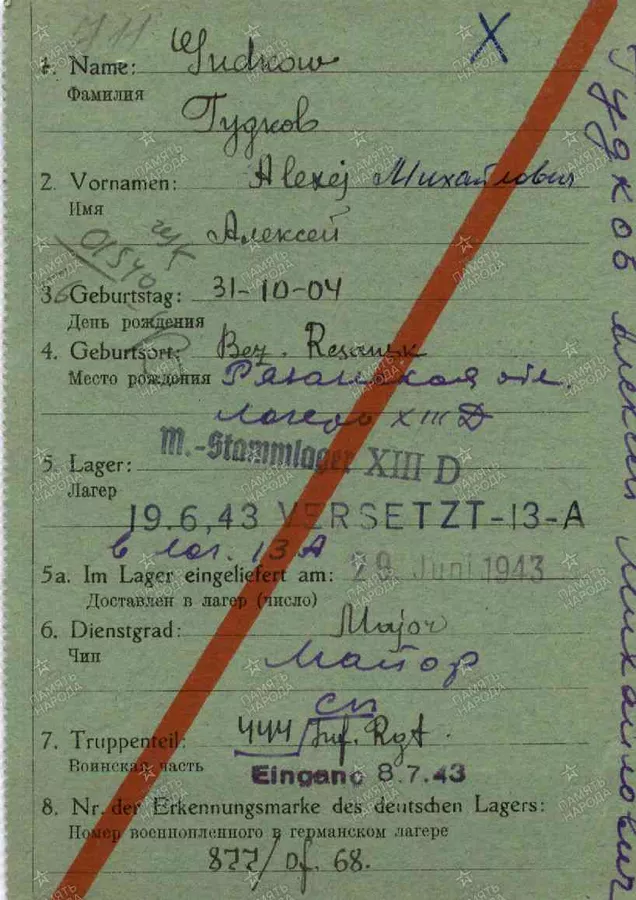 X
1. Name: Gudkow
Фамилия
Гудков
2. Vornamen: Alexej Михайлович
Имя
Алексей
3. Geburtstag: 31-10-04
День рождения
4. Geburtsort: Bez. Resansk
Место рождения Рязанская обл.
лагерь XIII D
M.-Stammlager XIII D
5. Lager:
Лагер
19.6,43 VERSETZT-13-A
в лаг. 13 А
5a. Im Lager eingeliefert am: 29 Juni 1943
Доставлен в лагер (число)
6. Dienstgrad: Major
Чин
Майор
сп
7. Truppenteil: 444/Inf. Rgt.
Воинская часть
Eingang 8.7.43
8. Nr. der Erkennungsmarke des deutschen Lagers:
Номер военнопленного в германском лагере
877/Of. 68.
Гудков Алексей Михайлович
ПАМЯТЬ НАРОДА